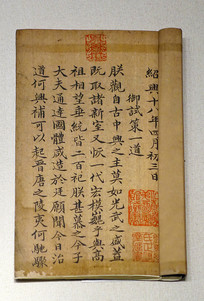 紹興十八年四月初三日
御試策一道
朕觀自古中興之主莫如光武之盛蓋
既取諸新室又恢一代宏模巍乎與高
祖相望垂統皆二百祀朕甚慕之今子
大夫通達國體咸造於廷願聞今日治
道何興補可以起晉唐之陵夷何馳驟